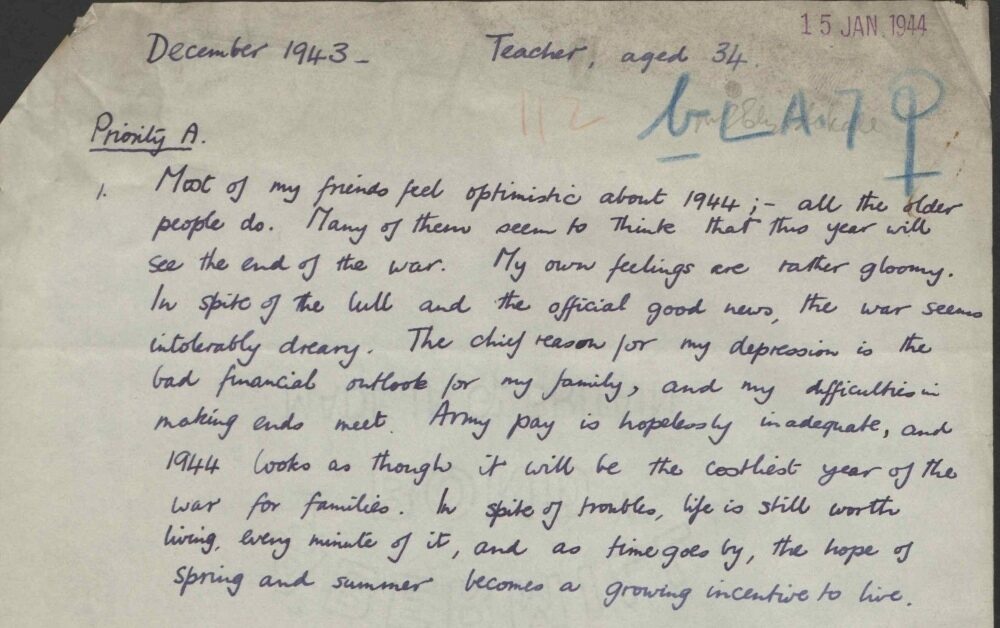 15 JAN 1944
December 1943 - Teacher, aged 34.
112 b L A 7 ♀
Priority A.
1. Most of my friends feel optimistic about 1944 ;- all the older
people do. Many of them seem to think that this year will
see the end of the war. My own feelings are rather gloomy.
In spite of the lull and the official good news, the war seems
intolerably dreary. The chief reason for my depression is the
bad financial outlook for my family, and my difficulties in
making ends meet. Army pay is hopelessly inadequate, and
1944 looks as though it will be the costliest year of the
war for families. In spite of troubles, life is still worth
living, every minute of it, and as time goes by, the hope of
spring and summer becomes a growing incentive to live.